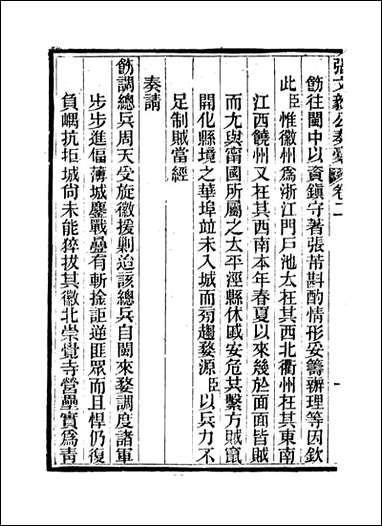 張文毅公奏稾 卷二
飭往閩中以資鎮守著張芾斟酌情形妥籌辦理等因欽
此臣惟徽州爲浙江門戸池太在其西北衢州在其東南
江西饒州又在其西南本年春夏以來幾於面面皆賊
而尢與甯國所屬之太平涇縣休戚安危其繫方賊竄
開化縣境之華埠竝未入城而旁趨婺源臣以兵力不
足制賊當經
奏請
飭調總兵周天受旋徽援剿迨該總兵自閩來婺調度諸軍
步步進偪薄城鏖戰疊有斬捦詎逆匪眾而且悍仍復
負嵎抗拒城尙未能猝拔其徽北崇覺寺營壘實爲靑